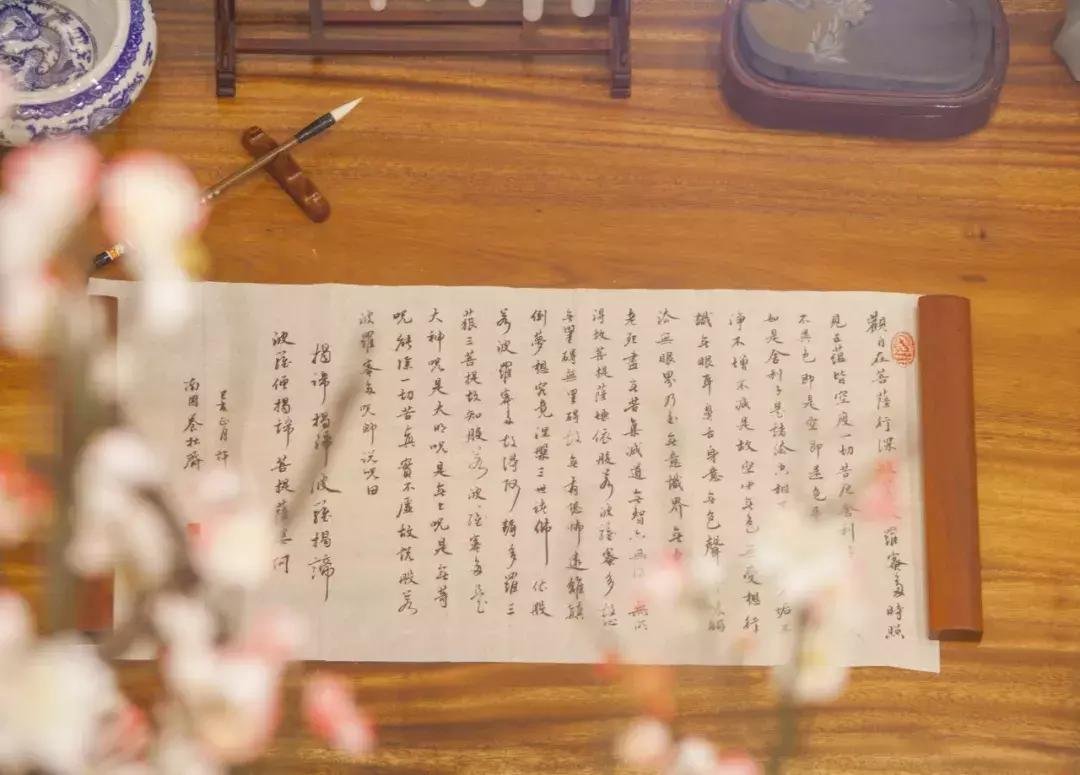 觀自在菩薩行深羅蜜多時照
見五蘊皆空度一切苦厄舍利
不異色即是空即是色
如是舍利子是諸法空相垢不
淨不增不減是故空中無色無受想行
識無眼耳鼻舌身意無色聲味觸
法無眼界乃至無意識界無
老死盡無苦集滅道無智亦無得無所
得故菩提薩埵依般若波羅蜜多故心
無罣礙無罣礙故無有恐怖遠離顛
倒夢想究竟涅槃三世諸佛依般
若波羅蜜多故得阿耨多羅三
藐三菩提故知般若波羅蜜多是
大神咒是大明咒是無上咒是無等
呪能除一切苦真實不虛故說般若
波羅蜜多咒即說咒曰
揭諦揭諦波羅揭諦
波羅僧揭諦菩提薩訶
己亥正月
南國